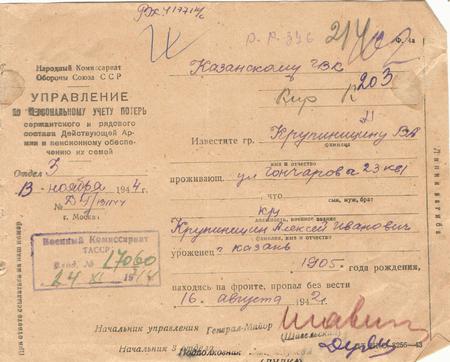 Народный Комиссариат
Обороны Союза ССР
УПРАВЛЕНИЕ
по ПЕРСОНАЛЬНОМУ УЧЕТУ ПОТЕРЬ
сержантского и рядового
состава Действующей Ар-
мии и пенсионному обеспе-
чению их семей
Отдел 3
13 ноября 1944 г.
№
г. Москва
Военный Комиссариат
ТАССР
Вход. № 17060
24 XI 1944
При ответе ссылаться на наш номер
Казанскому ГВК
203
Известите гр. Крупиницину ВА
фамилия
имя и отчество
проживающ. ул Гончарова 23 кв 1
что
сын, муж, брат
кр
должность, военное звание
Крупиницин Алексей Иванович
фамилия, имя и отчество
уроженец г казань
1905 года рождения,
находясь на фронте, пропал без вести
16 августа 1942 г.
Начальник управления Генерал-Майор
Начальник
Подполковник
Линия загиба